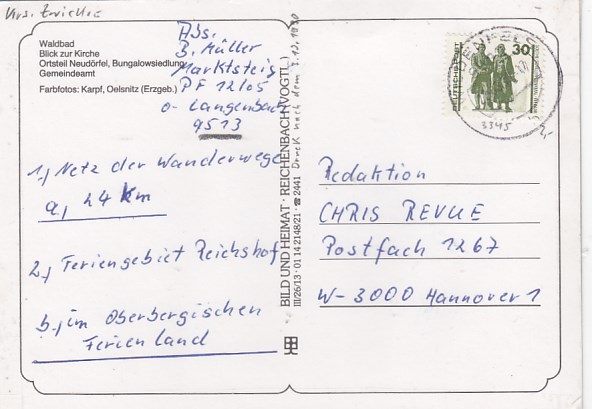 Krs. Zwickau
Waldbad
Blick zur Kirche
Ortsteil Neudörfel, Bungalowsiedlung
Gemeindeamt
Farbfotos: Karpf, Oelsnitz (Erzgeb.)
Abs.
B. Müller
Marktsteig
PF 12/05
O- Langenbach
9513
1.) Netz der Wanderwege
a, 24 km
2.) Feriengebiet Reichshof
b., im Oberbergischen
Ferienland
BILD UND HEIMAT · REICHENBACH (VOGTL.)
III/26/13 · 01 14 2148/21 · ☎ 2441
Druck nach dem 3.10.1990
DEUTSCHE POST
30
3345
Redaktion
CHRIS REVUE
Postfach 1267
W-3000 Hannover 1